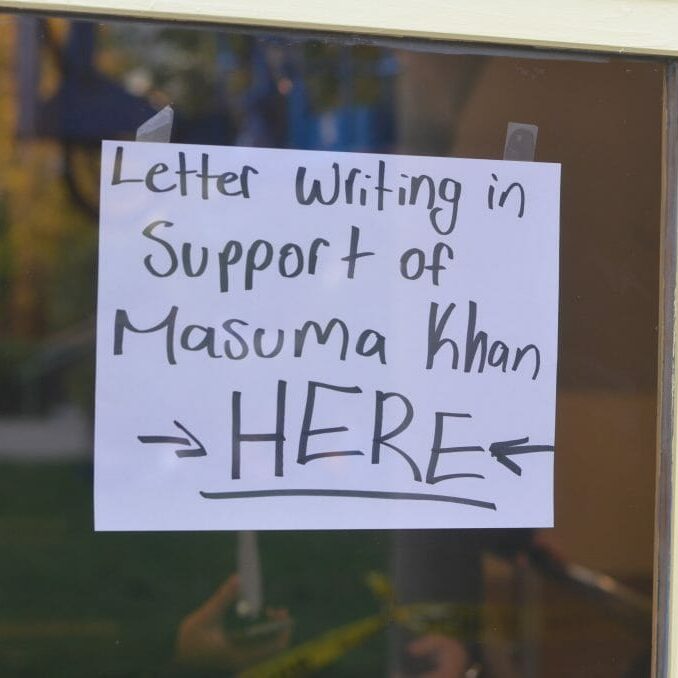 Letter Writing in
Support of
Masuma Khan
→ HERE ←